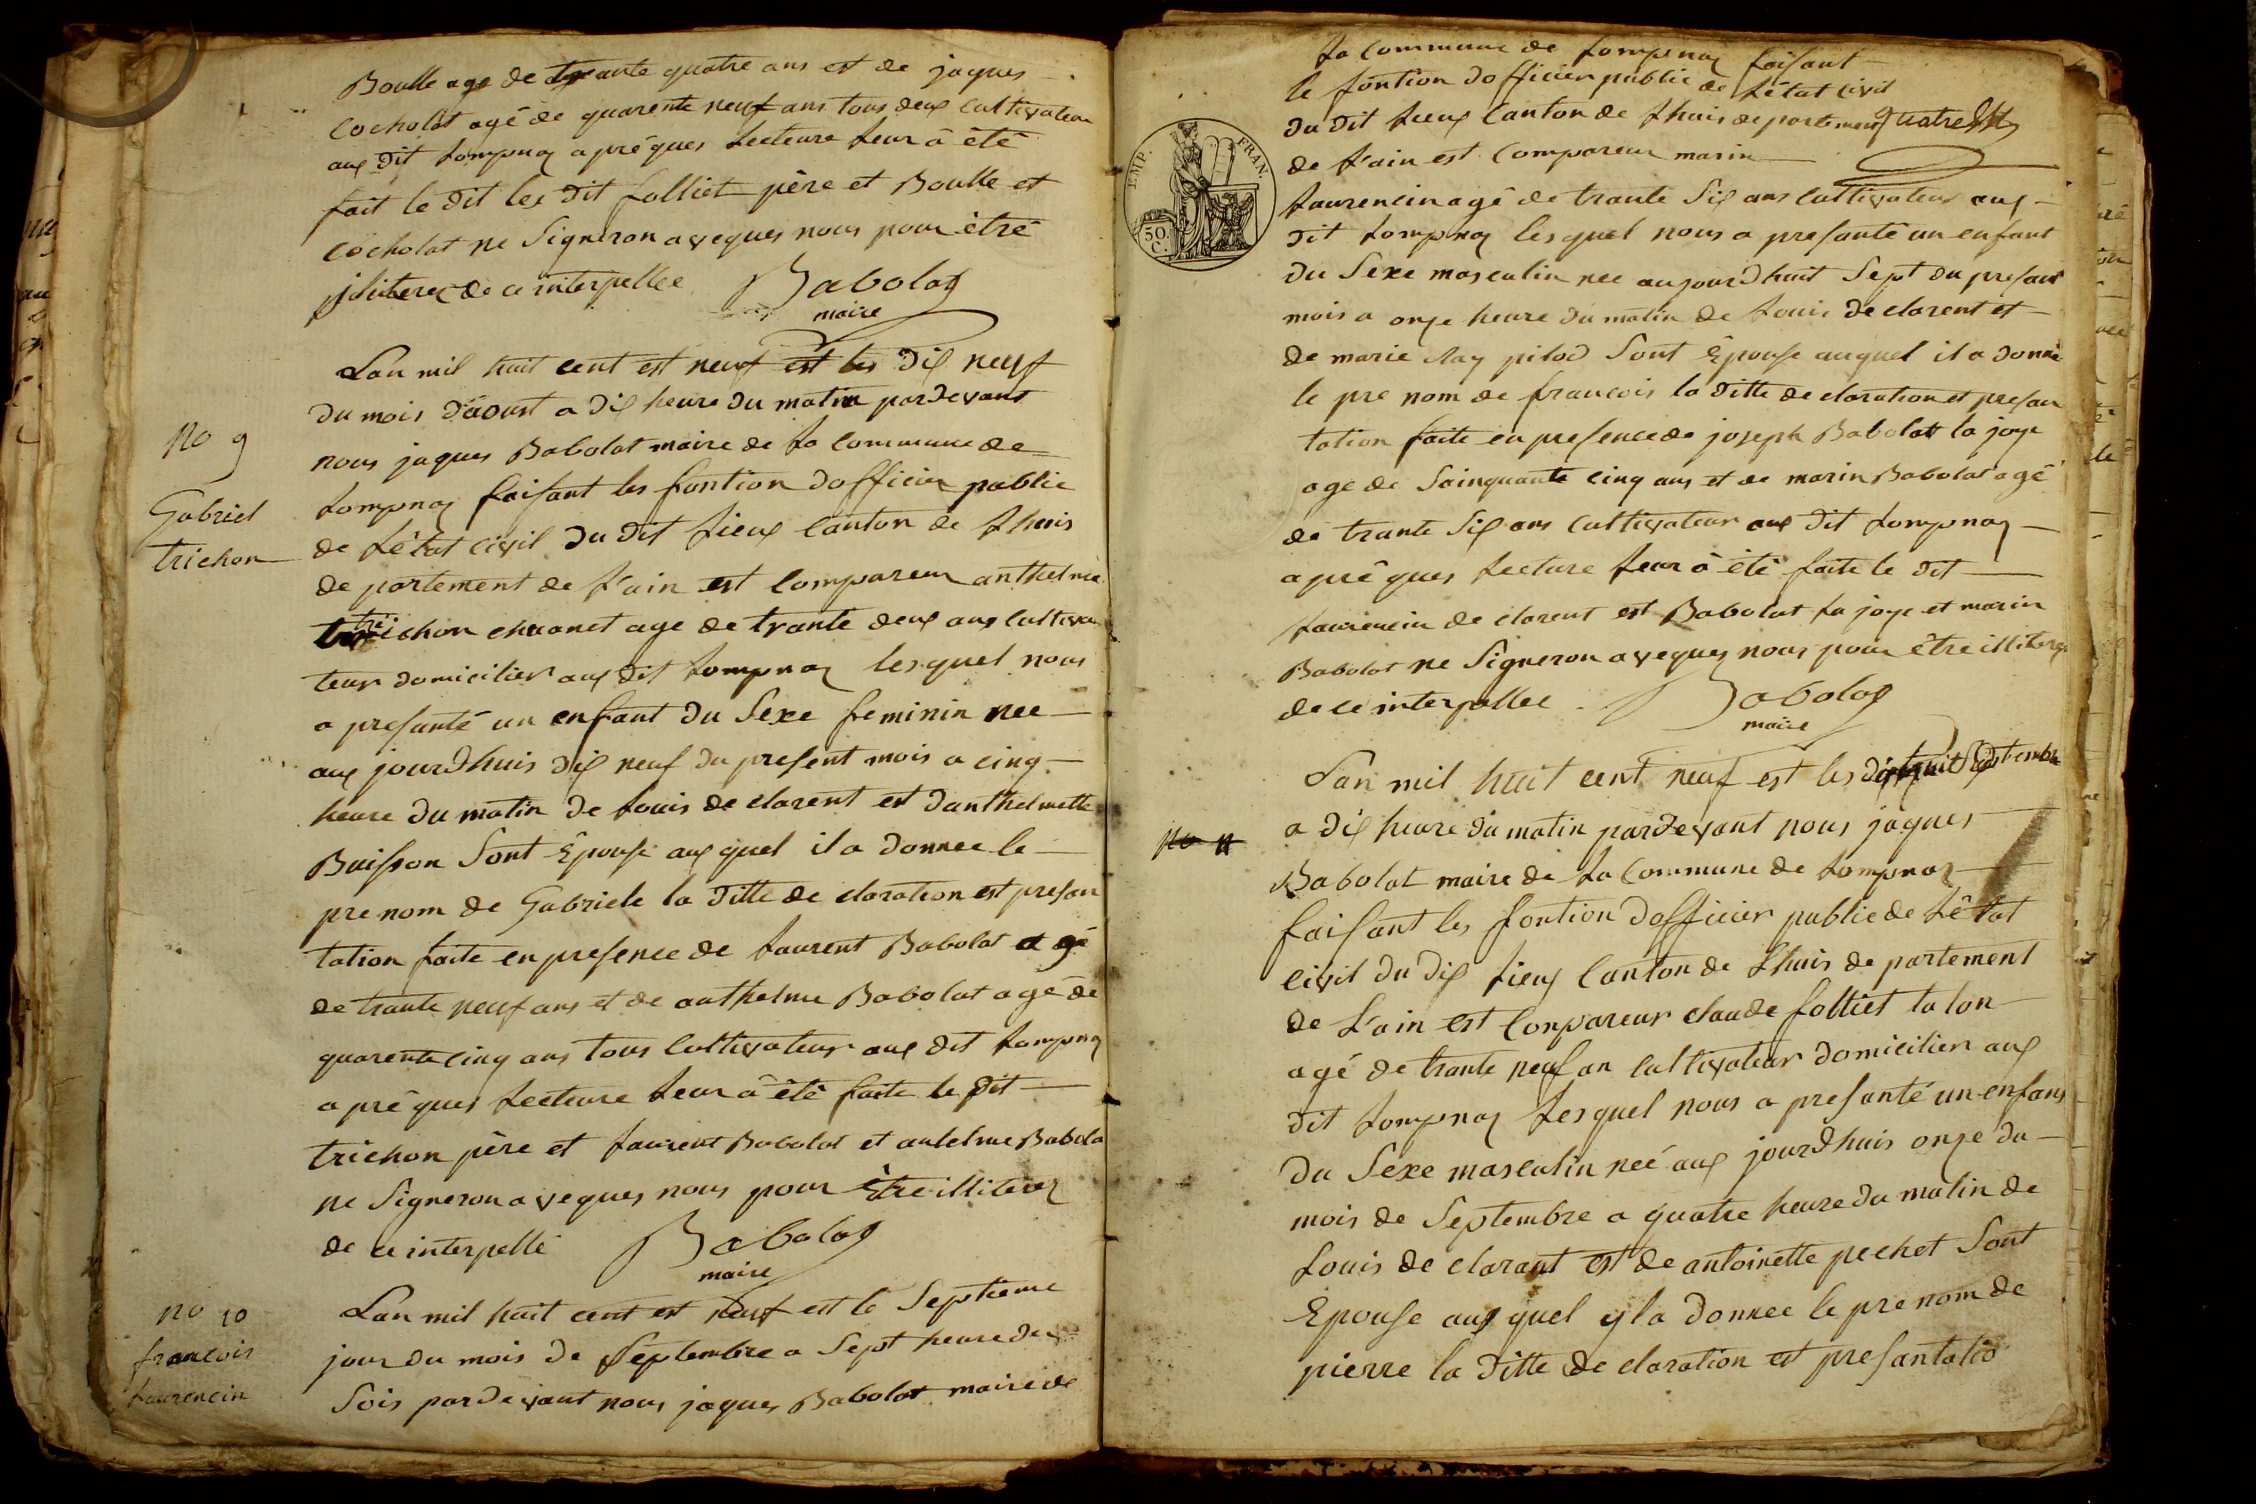 Boulle age de trante quatre ans est de jaques
Cocholat agé de quarente neuf ans tous deux Cultivateur
aux dit Lompnaz a préques Lecteure Leur à été
fait le dit les dit folliet père et Boulle et
Cocholat ne Signeron aveques nous pour être
de ce interpellee Babolaz
maire
Lan mil huit cent est neuf est les dix neuf
du mois daoust a dix heure du matin pardevant
No 9
nous jaques Babolat maire de La Commune de
Gabriel
Lompnaz faisant les fontion dofficier public
trichon
de Létat civil du dit Lieux Canton de Lhuis
de partement de L'ain est Compareur anthelme
trichon chuonet age de trante deux ans Cultiva
teur domicilier aux dit Lompnaz lesquel nous
a presanté un enfant du Sexe feminin nee
aux jourdhuis dix neuf du present mois a cinq
heure du matin de Louis de clarent est danthelmette
Buisson Sont Epouse aux quel il a donnee le
pre nom de Gabriele la ditte de claration est presan
tation faite en presence de Laurent Babolat a gé
de trante neuf ans et de anthelme Babolat agé de
quarente cinq ans tous Cultivateur aux dit Lompnaz
a préques Lecteure Leur a été faite le dit
trichon père et Laurent Babolat et antelme Babola
ne Signeron aveques nous pour être illiterez
de ce interpellé Babolaz
maire
No 10
Lan mil huit cent est neuf est le Septieme
francois
jour du mois de Septembre a Sept heure du
Laurencin
Sois pardevant nous jaques Babolat maire de
La Commune de Lompnaz faisant
le fontion dofficier public de Létat civil
du dit Lieux Canton de Lhuis departement
de L'ain est Compareur marin
EMP. FRAN.
50. C.
Laurencin agé de trante Six ans Cultivateur aux
dit Lompnaz lesquel nous a presanté un enfant
du Sexe masculin nee aujourdhuit Sept du presant
mois a onze heure du matin de Louis de clarent et
de marie Ray pilod Sont Epouse auquel il a donné
le pre nom de francois la ditte de claration et presan
tation faite en presence de joseph Babolat la joye
age de Sainquante cinq ans et de marin Babolat agé
de trante Six ans Cultivateur aux dit Lompnaz
a préques Lecture Leur à été faite le dit
Laurencin de clarent est Babolat La joye et marin
Babolat ne Signeron aveques nous pour être illiterez
de ce interpellee Babolaz
maire
Lan mil huit cent neuf est les Septembre
No 11
a dix heure du matin pardevant nous jaques
Babolat maire de La Commune de Lompnaz
faisant les fontion dofficier public de Létat
civil du dix Lieux Canton de Lhuis de partement
de L'ain est Conpareur claude folliet talon
agé de trante neuf an Cultivateur domicilier aux
dit Lompnaz Lesquel nous a presanté un enfans
du Sexe masculin neé aux jourdhuis onze du
mois de Septembre a quatre heure du matin de
Louis de clarant est de antoinette pechet Sont
Epouse aux quel yla donnee le pre nom de
pierre la ditte de claration est presantatio